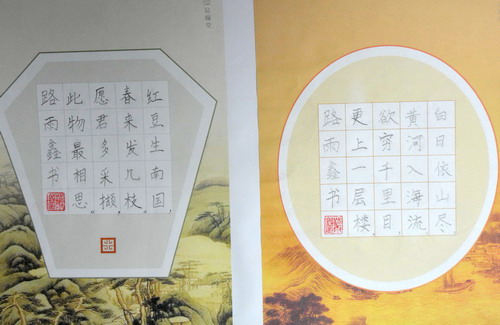 红豆生南国，
春来发几枝。
愿君多采撷，
此物最相思。
路雨鑫书
白日依山尽，
黄河入海流。
欲穷千里目，
更上一层楼。
路雨鑫书